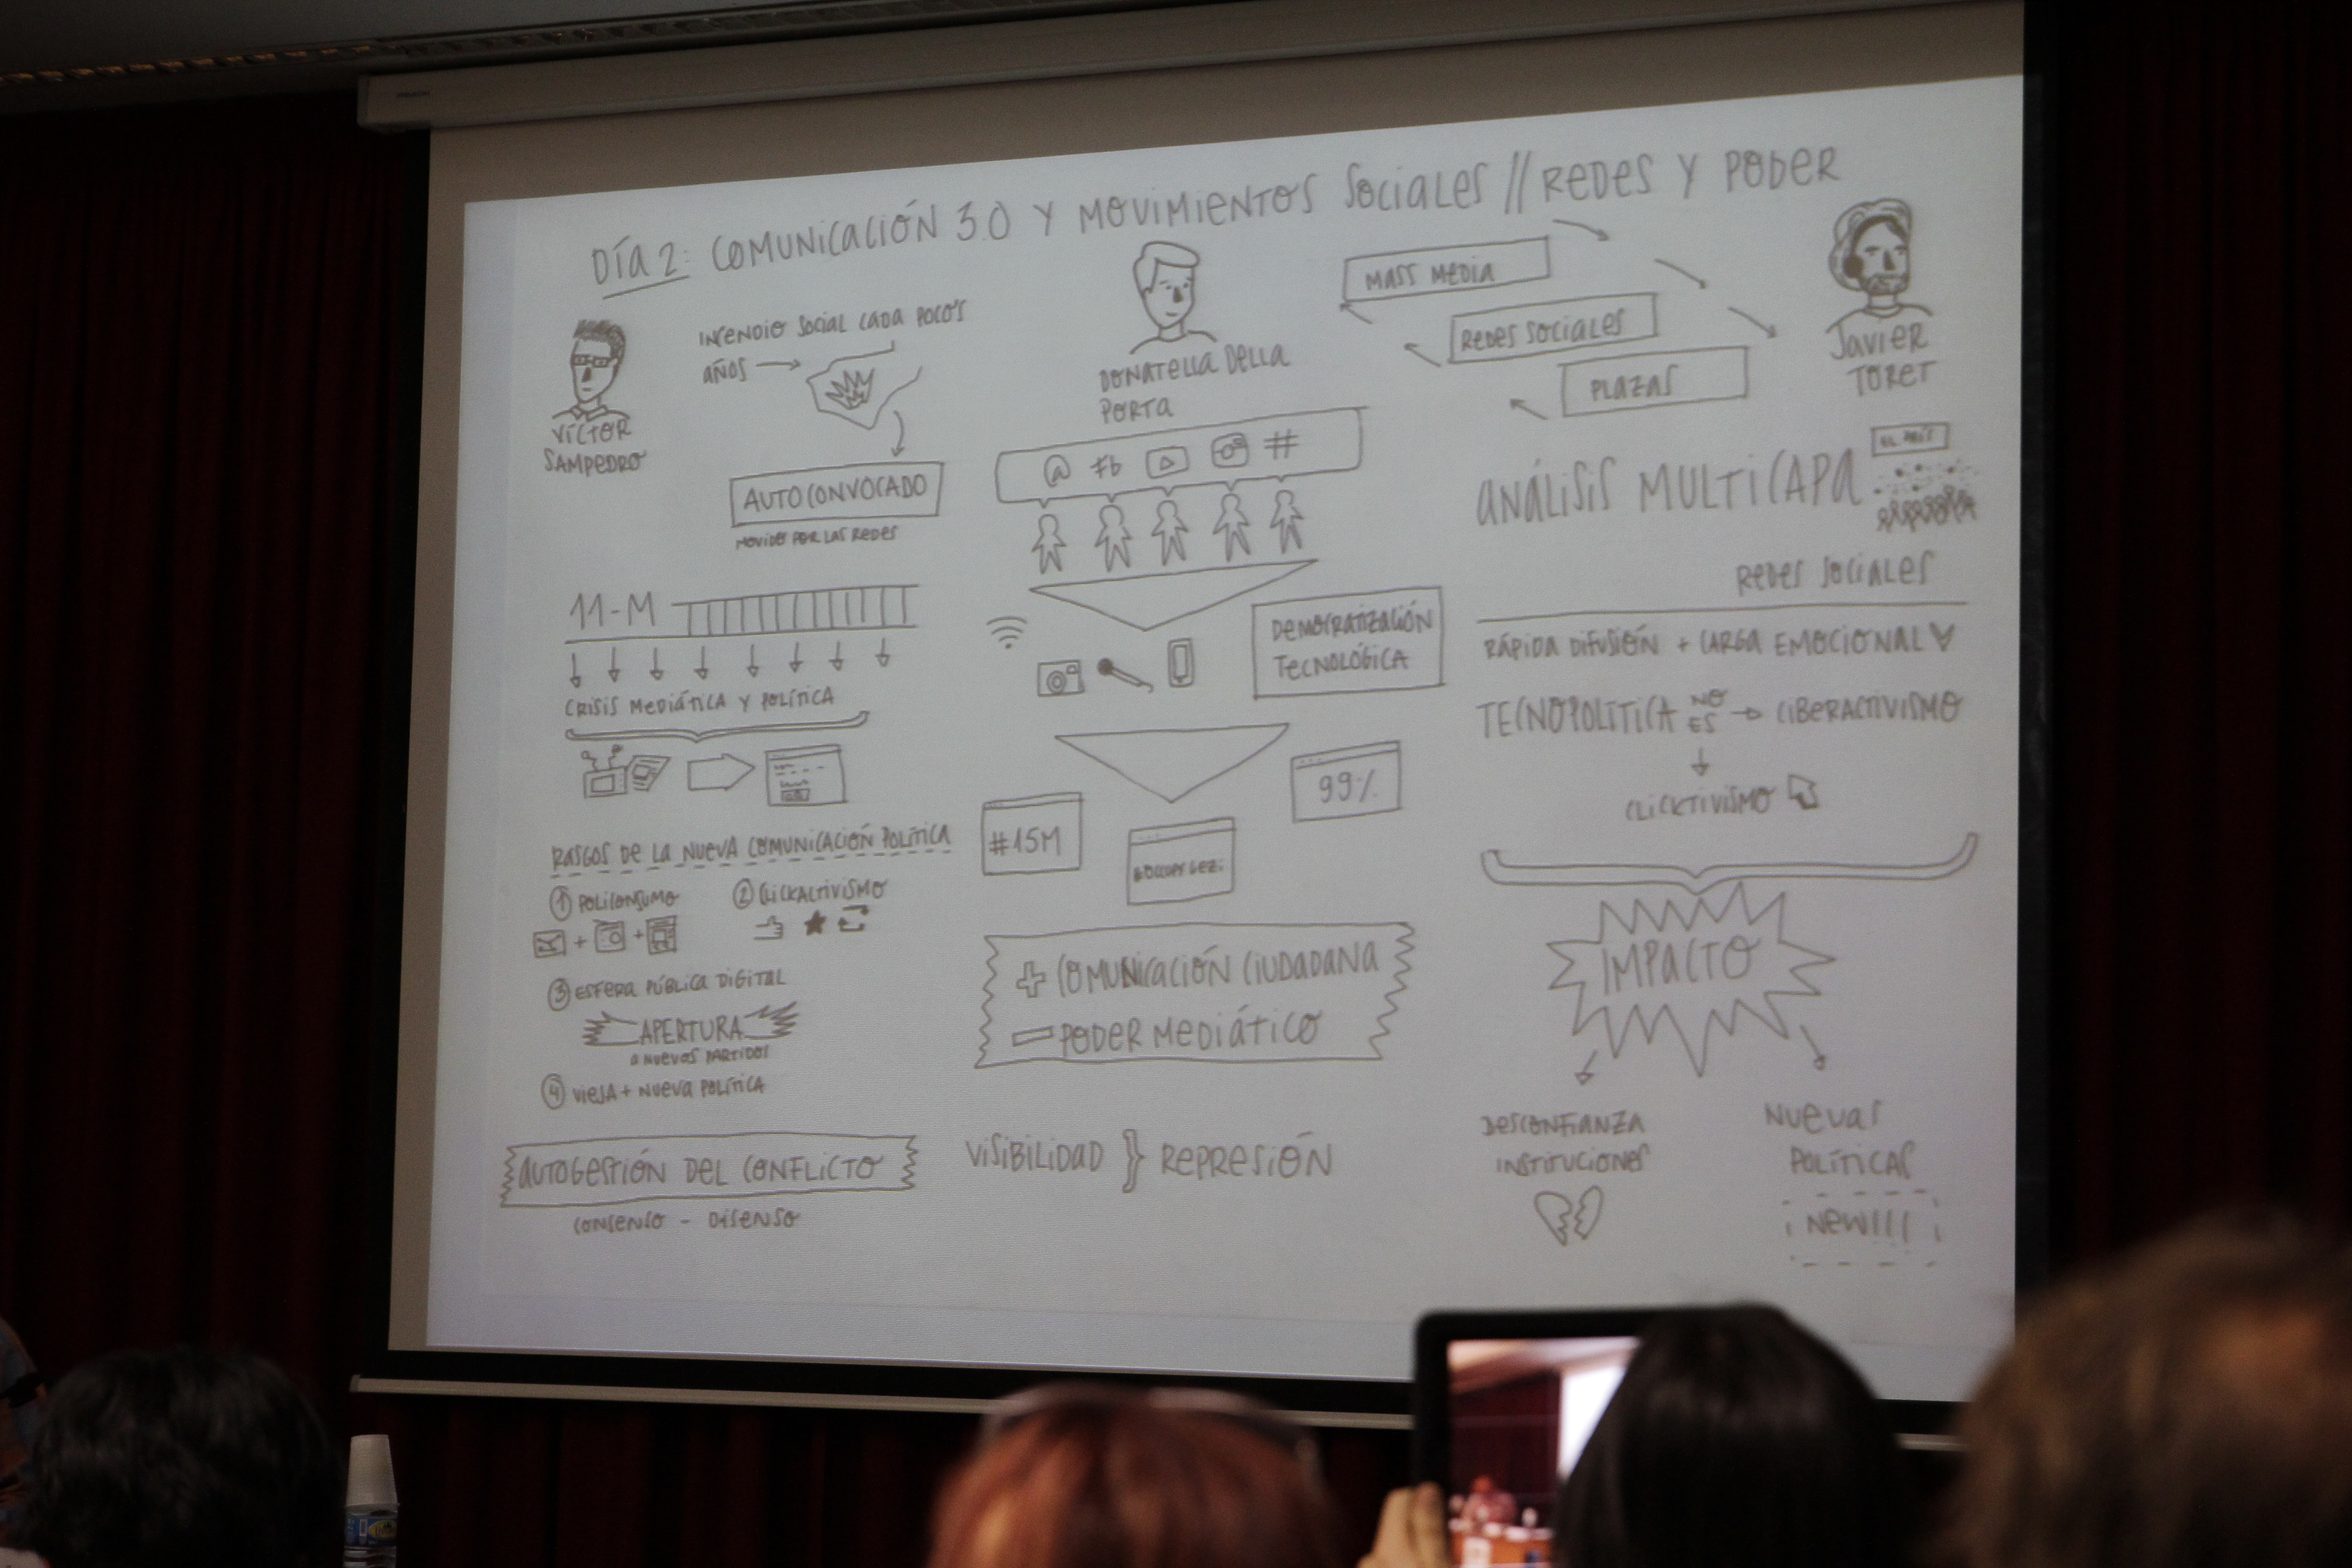 DÍA 2: COMUNICACIÓN 3.0 Y MOVIMIENTOS SOCIALES // REDES Y PODER
VÍCTOR
SAMPEDRO
INCENDIO SOCIAL CADA POCOS
AÑOS
AUTOCONVOCADO
MOVIDO POR LAS REDES
11-M
CRISIS MEDIÁTICA Y POLÍTICA
RASGOS DE LA NUEVA COMUNICACIÓN POLÍTICA
1 POLICONSUMO
2 CLICKACTIVISMO
3 ESFERA PÚBLICA DIGITAL
APERTURA
A NUEVOS PARTIDOS
4 VIEJA + NUEVA POLÍTICA
AUTOGESTIÓN DEL CONFLICTO
CONSENSO - DISENSO
DONATELLA DELLA
PORTA
@ fb #
DEMOCRATIZACIÓN
TECNOLÓGICA
#15M
#OCCUPYGEZI
99%
+ COMUNICACIÓN CIUDADANA
- PODER MEDIÁTICO
VISIBILIDAD } REPRESIÓN
MASS MEDIA
REDES SOCIALES
PLAZAS
JAVIER
TORET
ANÁLISIS MULTICAPA
EL PAÍS
REDES SOCIALES
RÁPIDA DIFUSIÓN + CARGA EMOCIONAL
TECNOPOLÍTICA NO ES → CIBERACTIVISMO
CLICKTIVISMO
IMPACTO
DESCONFIANZA
INSTITUCIONES
NUEVAS
POLÍTICAS
NEW!!!